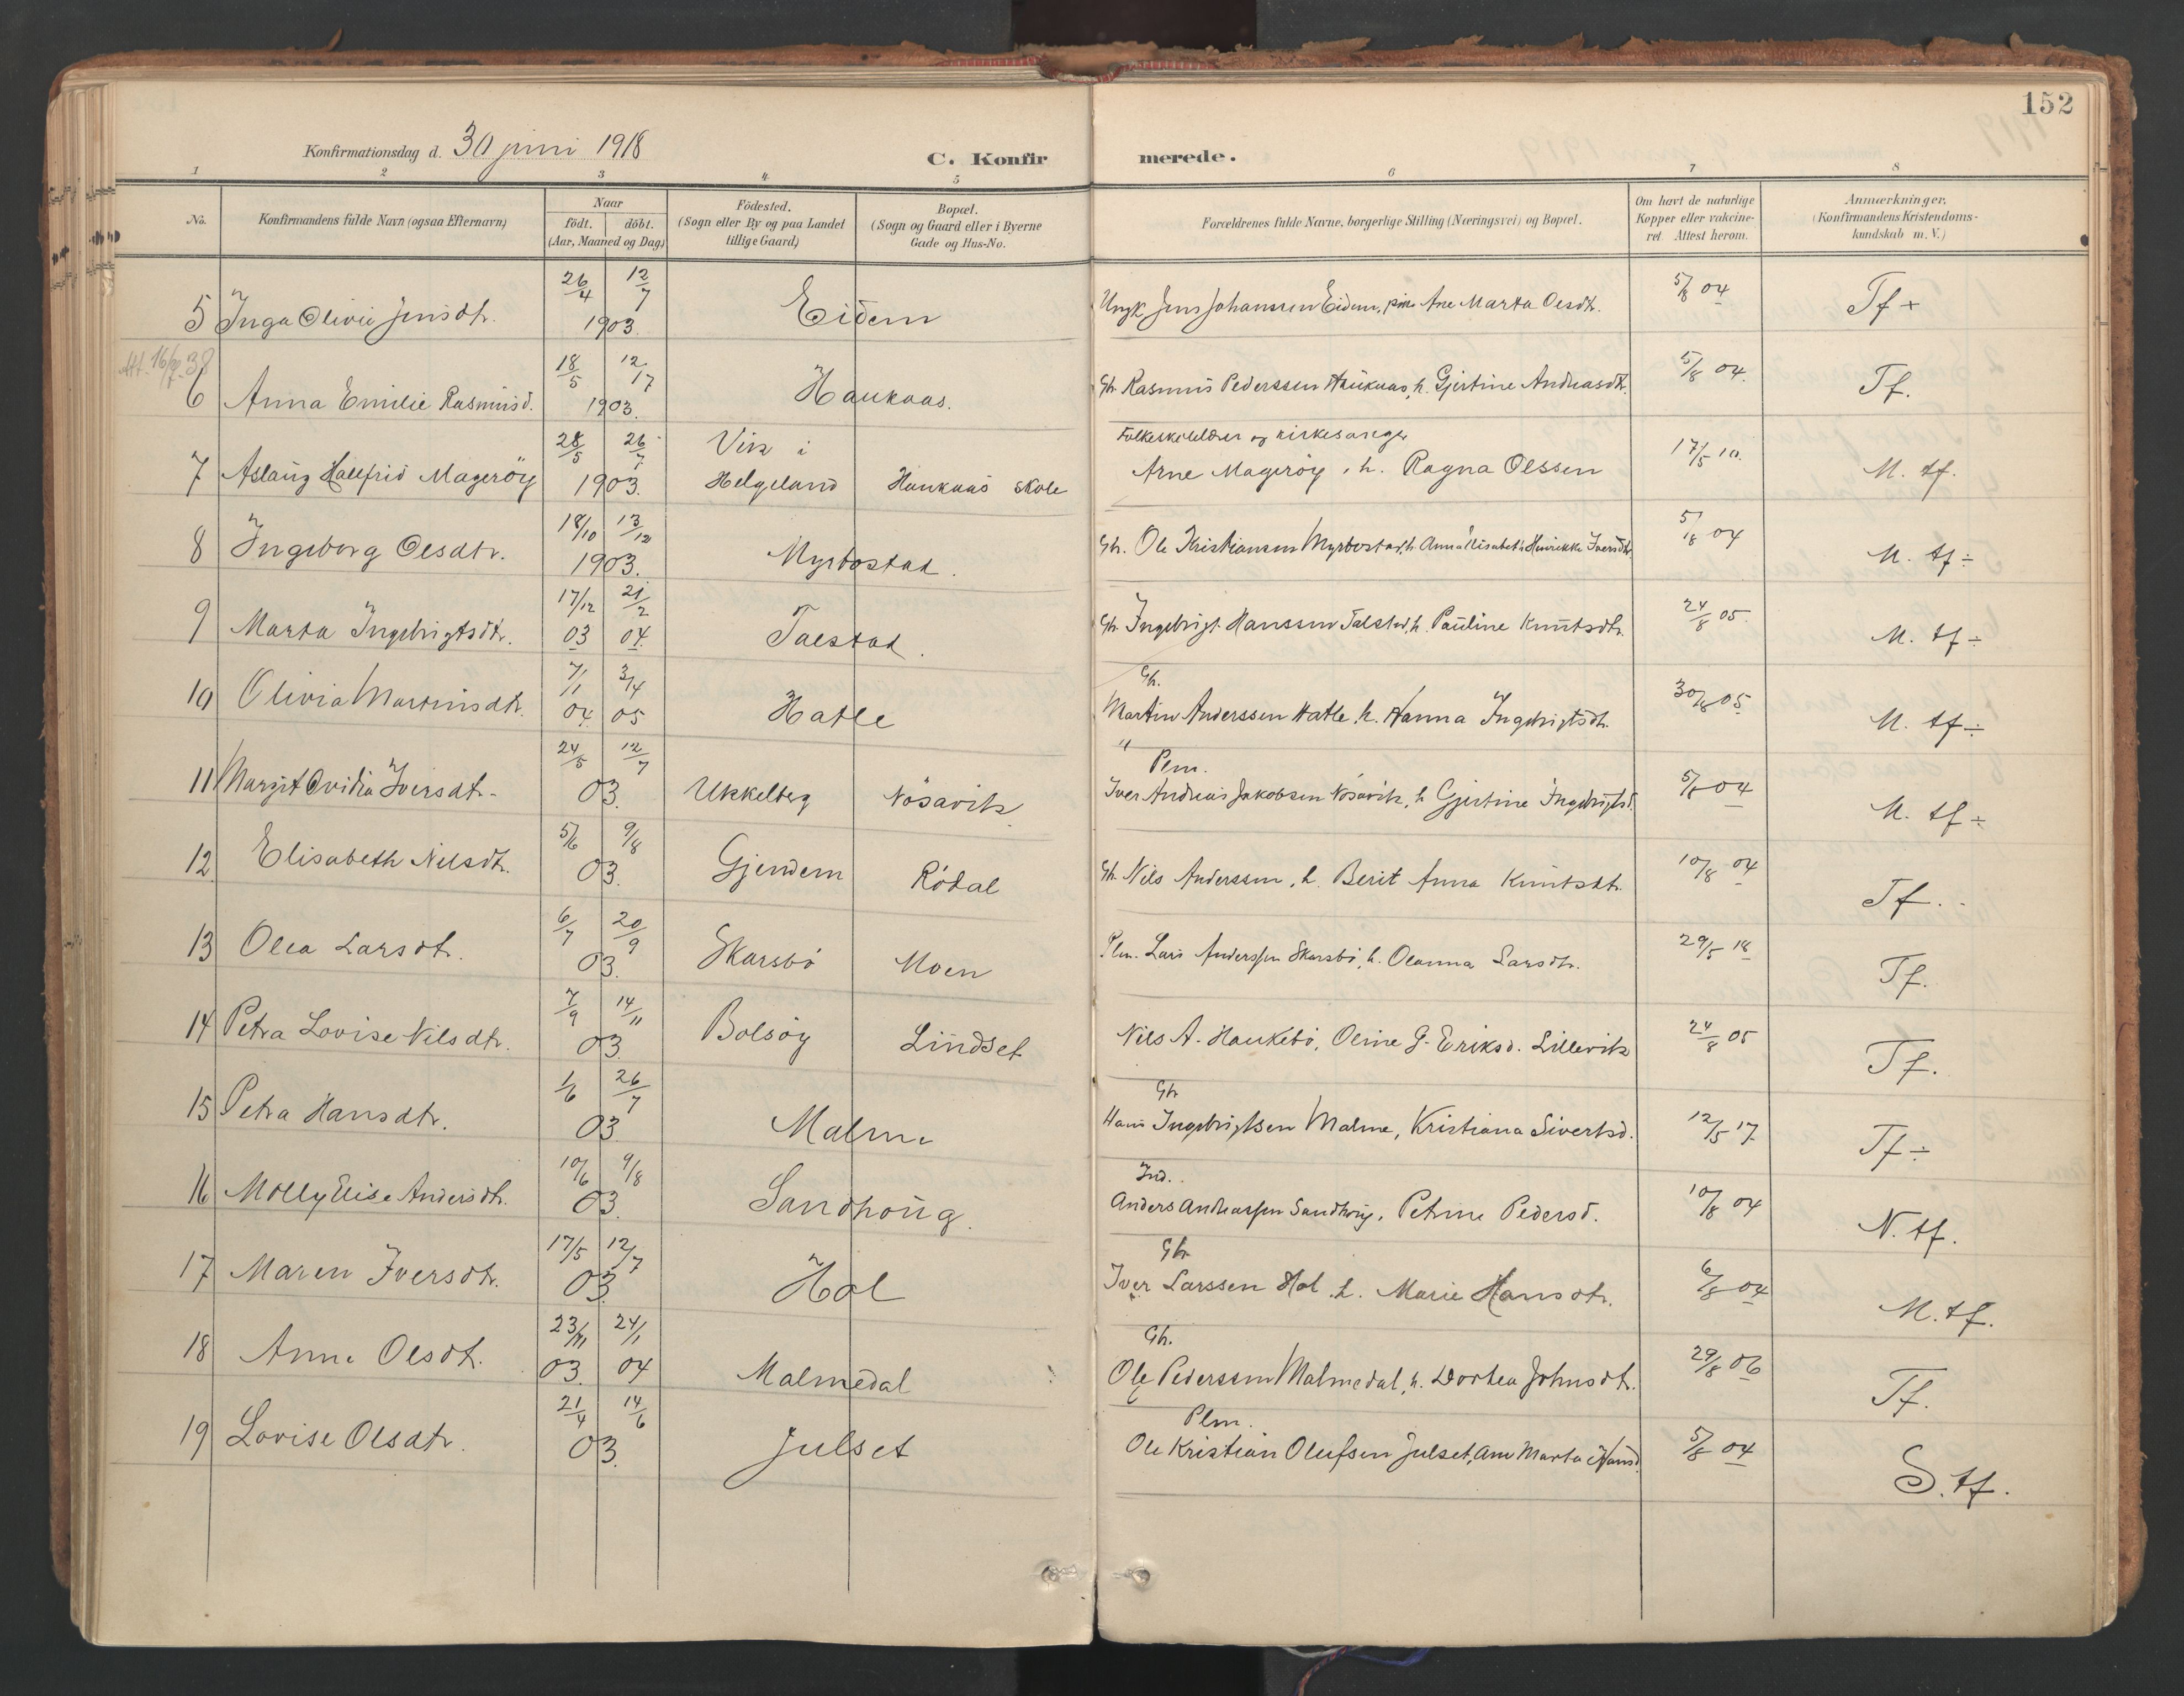 152
Konfirmationsdag d. 30 juni 1918
C. Konfirmerede.
1 2 3 4 5 6 7 8
No.
Konfirmandens fulde Navn (ogsaa Efternavn)
Naar
födt. döbt.
(Aar, Maaned og Dag)
Födested.
(Sogn eller By og paa Landet
tillige Gaard)
Bopæl.
(Sogn og Gaard eller i Byerne
Gade og Hus-No.
Forældrenes fulde Navne, borgerlige Stilling (Næringsvei) og Bopæl.
Om havt de naturlige
Kopper eller vakcine-
ret. Attest herom.
Anmærkninger.
(Konfirmandens Kristendoms-
kundskab m. V.)
5 Inga Olivie Jensdtr. 26/4 12/7 1903. Eidem Ungk. Jens Johanssen Eidem, pike Ane Marta Olsdtr. 5/8 04 Tf +
6 Anna Emilie Rasmusd. 18/5 12/7 1903. Haukaas. Gbr. Rasmus Pederssen Haukaas, h. Gjertine Andreasdtr. 5/8 04. Tf.
7 Aslaug Hallfrid Mageröy 28/5 26/7 1903. Vik i Helgeland Haukaas skole Folkeskolelærer og kirkesanger
Arne Magerøy, h. Ragna Olssen 17/5 10. M. tf.
8 Ingeborg Olsdtr. 18/10 13/12 1903. Myrbostad. Gbr. Ole Kristiansen Myrbostad, h. Anna Elisabeth Henrikke Iversdtr. 5/8 04 M. tf ÷
9 Marta Ingebrigtsdtr. 17/12 03 21/2 04. Talstad. Gbr. Ingebrigt Hanssen Talstad, h. Pauline Knutsdtr. 24/8 05. M. tf ÷
10 Olivia Martinsdtr. 7/1 04. 3/4 05 Hatle Gbr.
Martin Anderssen Hatle, h. Hanna Ingebrigtsdtr. 30/8 05. M. tf ÷
11 Margit Ovidia Iversdtr. 24/5 12/7 03. Ukkelberg Nösavik Plm.
Iver Andreas Jakobsen Nösavik, h. Gjertine Ingebrigtsd. 5/8 04 M. tf ÷
12 Elisabeth Nilsdtr. 5/6 9/8 03. Gjendem Rödal Gbr. Nils Anderssen, h. Berit Anna Knutsdtr. 10/8 04 Tf.
13 Olea Larsdtr. 6/7 20/9 03. Skarsbö Moen Plm. Lars Anderssen Skarsbö, h. Oleanna Larsdtr. 29/5 18 Tf.
14 Petra Lovise Nilsdtr. 7/9 14/11 03. Bolsöy Lindset Nils A. Haukebö, Oline G. Eriksd. Lillevik 24/8 05 Tf.
15 Petra Hansdtr. 1/6 26/7 03. Malme Gbr
Hans Ingebrigtsen Malme, Kristiana Sivertsd. 12/5 17. Tf ÷
16 Molly Elise Andersdtr. 10/6 9/8 03. Sandhoug. Ind.
Anders Andreassen Sandhoug, Petrine Pedersd. 10/8 04 N. tf.
17 Maren Iversdtr. 17/5 12/7 03. Hol Gbr
Iver Larssen Hol, h. Marie Hansdtr. 6/8 04 M. tf.
18 Anna Olsdtr. 23/11 03. 24/1 04 Malmedal Gbr.
Ole Pederssen Malmedal, h. Dortea Johnsdtr. 29/8 06 Tf.
19 Lovise Olsdtr. 21/4 14/6 03. Julset Plm.
Ole Kristian Olufsen Julset, Ane Marta Hansd. 5/8 04 S. tf.